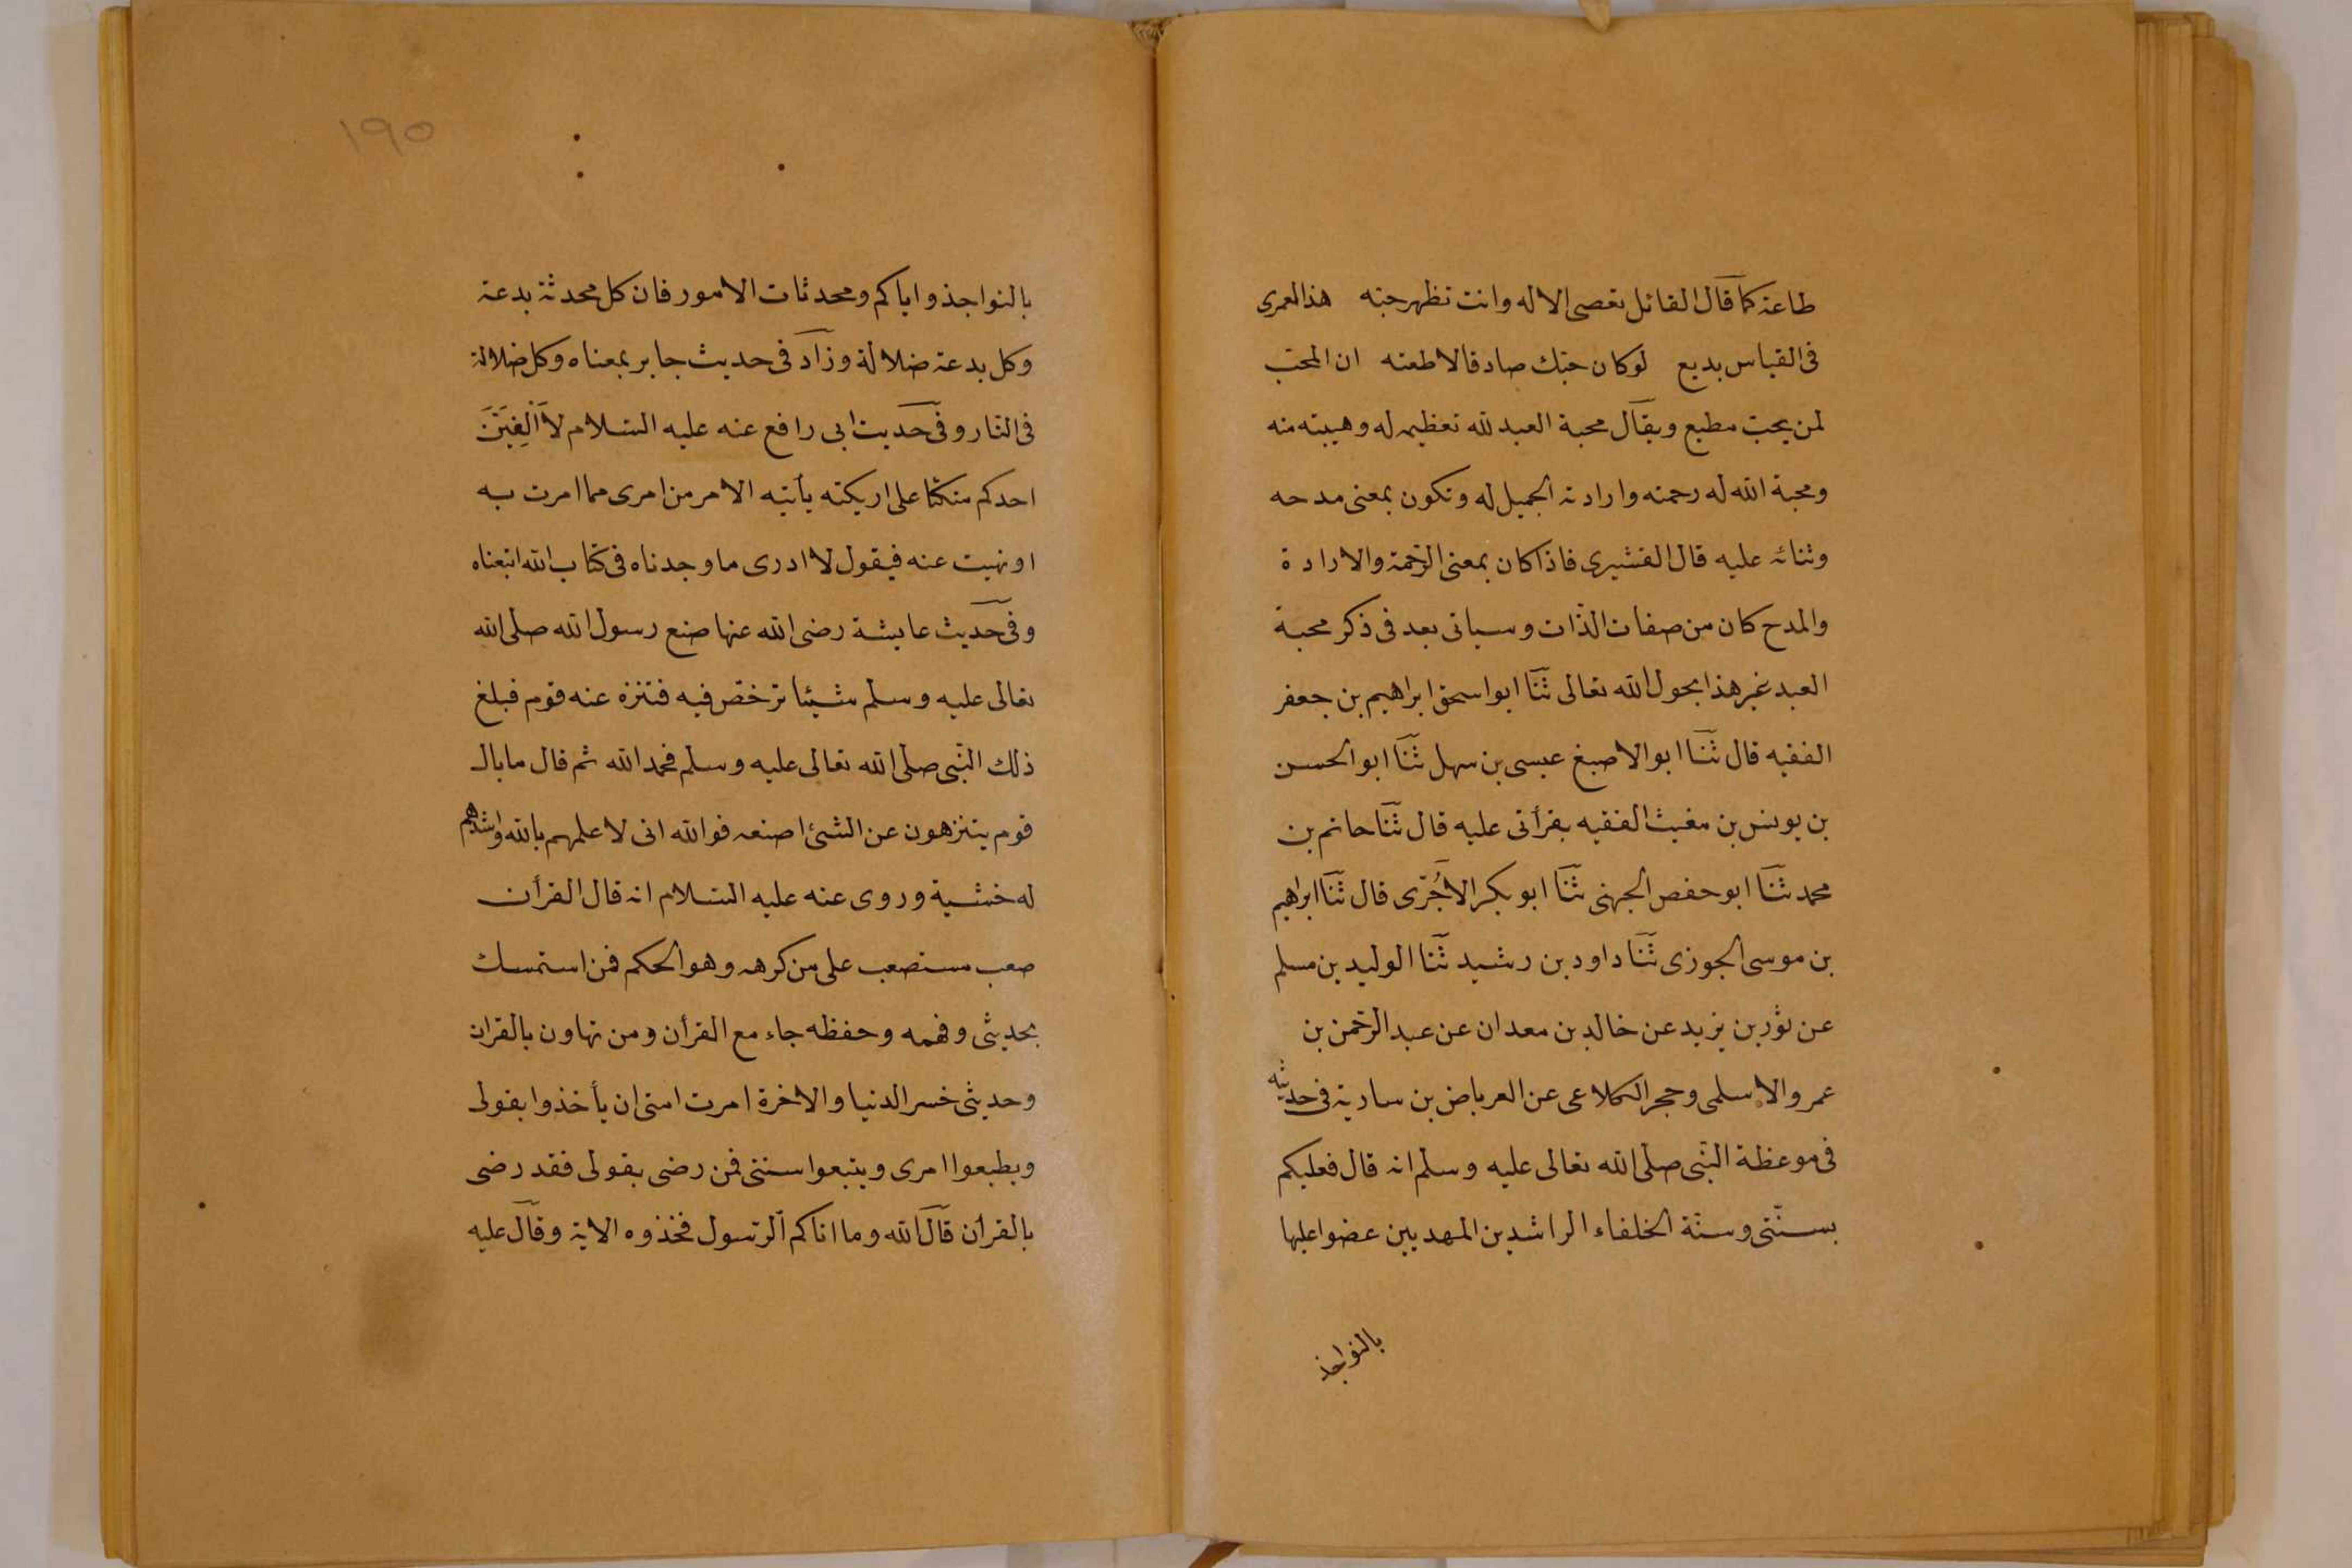 طاعة كما قال القائل تعصى الاله وانت تظهر حبه هذا لعمرى
فى القياس بديع لو كان حبك صادقا لاطعته ان المحب
لمن يحب مطيع ويقال محبة العبد لله تعظيمه له وهيبته منه
ومحبة الله له رحمته وارادته الجميل له وتكون بمعنى مدحه
وثنائه عليه قال القشيرى فاذا كان بمعنى الرحمة والارادة
والمدح كان من صفات الذات وسياتى بعد فى ذكر محبة
العبد غير هذا بحول الله تعالى ثنا ابو اسحق ابراهيم بن جعفر
الفقيه قال ثنا ابو الاصبغ عيسى بن سهل ثنا ابو الحسن
بن يونس بن مغيث الفقيه بقرأتى عليه قال ثنا حاتم بن
محمد ثنا ابو حفص الجهنى ثنا ابو بكر الاجرى قال ثنا ابراهيم
بن موسى الجوزى ثنا داود بن رشيد ثنا الوليد بن مسلم
عن ثور بن يزيد عن خالد بن معدان عن عبد الرحمن بن
عمرو الاسلمى وحجر الكلاعى عن العرباض بن سارية فى حديثه
فى موعظة النبى صلى الله تعالى عليه وسلم انه قال فعليكم
بسنتى وسنة الخلفاء الراشدين المهديين عضوا عليها
بالنواجذ
١٩٥
بالنواجذ واياكم ومحدثات الامور فان كل محدثة بدعة
وكل بدعة ضلالة وزاد فى حديث جابر بمعناه وكل ضلالة
فى النار وفى حديث ابى رافع عنه عليه السلام لا اُلْفِيَنَّ
احدكم متكئا على اريكته يأتيه الامر من امرى مما امرت به
او نهيت عنه فيقول لا ادرى ما وجدناه فى كتاب الله اتبعناه
وفى حديث عايشة رضى الله عنها صنع رسول الله صلى الله
تعالى عليه وسلم شيئا ترخص فيه فتنزه عنه قوم فبلغ
ذلك النبى صلى الله تعالى عليه وسلم فحمد الله ثم قال ما بال
قوم يتنزهون عن الشئ اصنعه فوالله انى لاعلمهم بالله واشدهم
له خشية وروى عنه عليه السلام انه قال القرأن
صعب مستصعب على من كرهه وهو الحكم فمن استمسك
بحديثى وفهمه وحفظه جاء مع القرأن ومن تهاون بالقران
وحديثى خسر الدنيا والاخرة امرت امتى ان يأخذوا بقولى
ويطيعوا امرى ويتبعوا سنتى فمن رضى بقولى فقد رضى
بالقرأن قال الله وما اتاكم الرسول فخذوه الاية وقال عليه